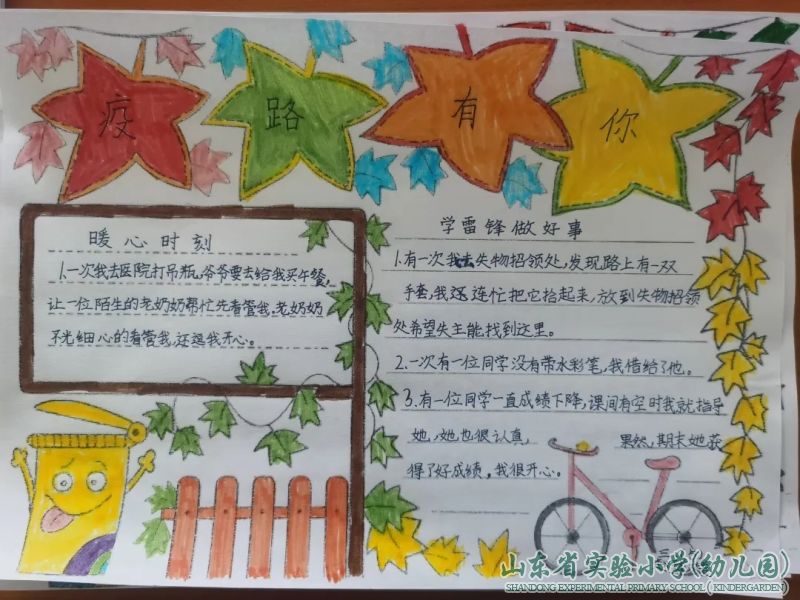 疫路有你
暖心时刻
1.一次我去医院打吊瓶,爷爷要去给我买午餐,
让一位陌生的老奶奶帮忙先看管我,老奶奶
不光细心的看管我,还逗我开心。
学雷锋做好事
1.有一次我去失物招领处,发现路上有一双
手套,我连忙把它拾起来,放到失物招领
处希望失主能找到这里。
2.一次有一位同学没有带水彩笔,我借给了他。
3.有一位同学一直成绩下降,课间有空时我就指导
她,她也很认真, 果然,期末她获
得了好成绩,我很开心。
山东省实验小学(幼儿园)
SHANDONG EXPERIMENTAL PRIMARY SCHOOL (KINDERGARDEN)